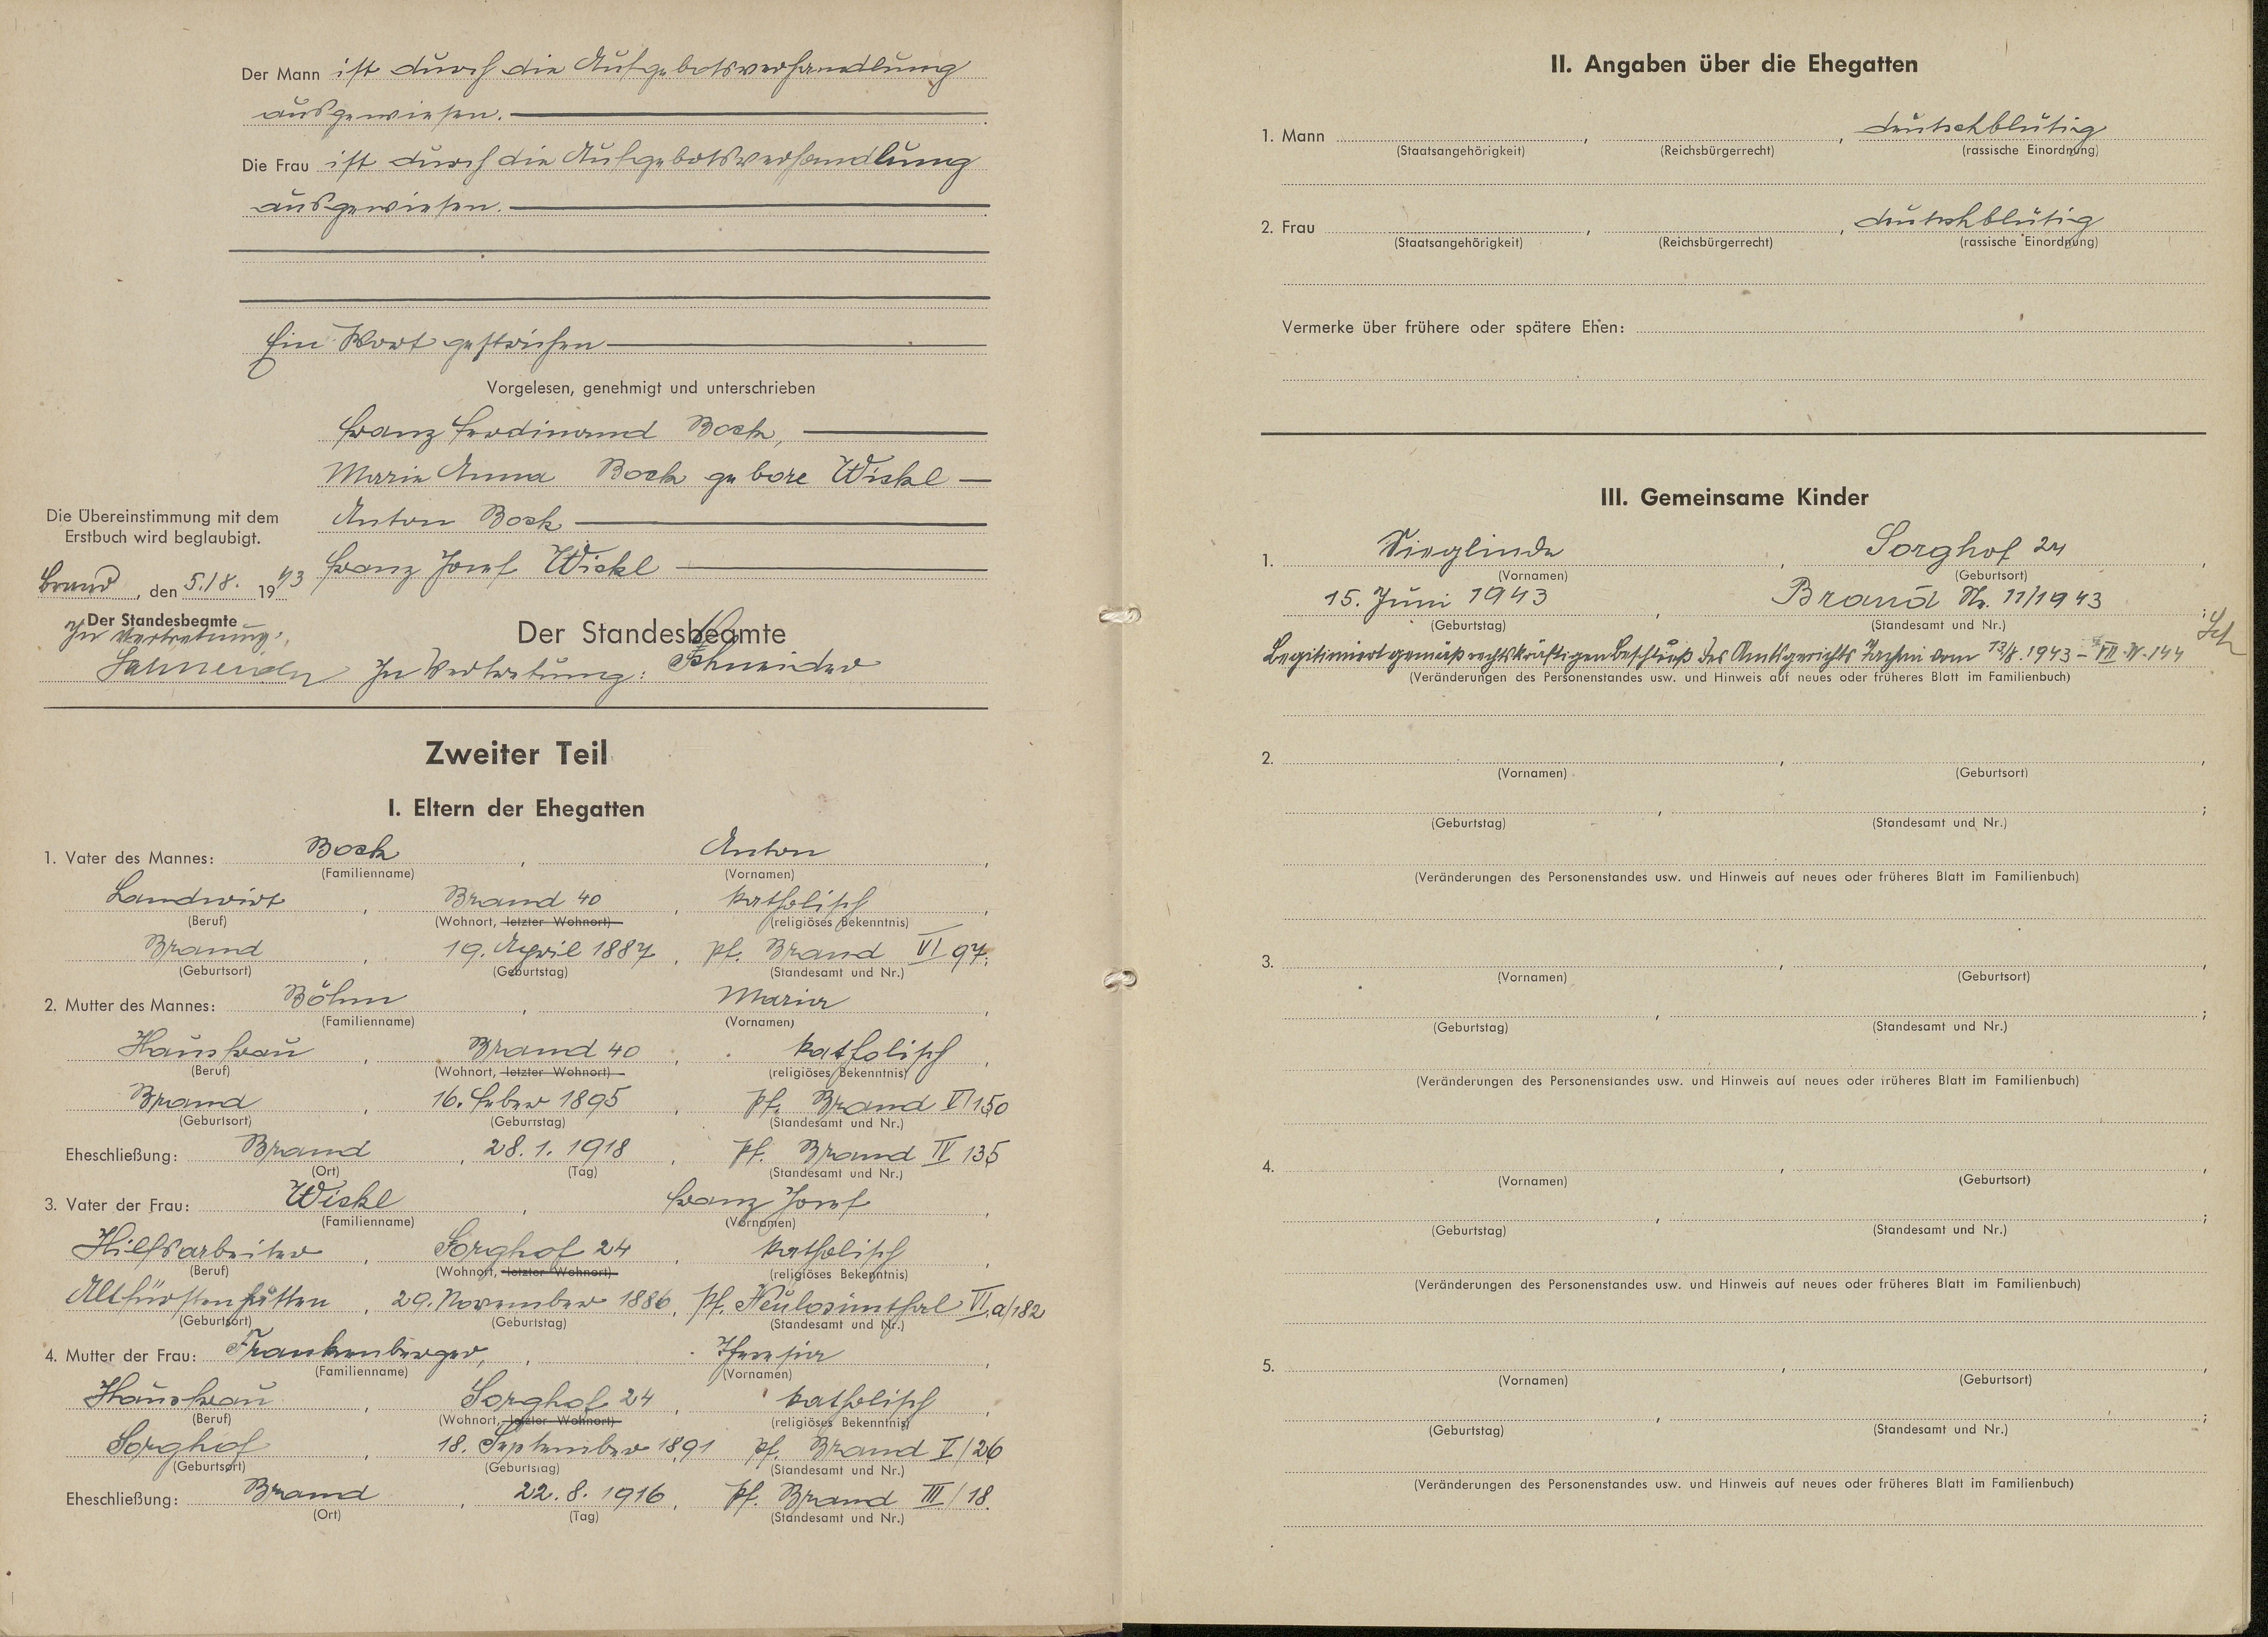 Der Mann ist durch die Aufgebotsverhandlung
ausgewiesen.
Die Frau ist durch die Aufgebotsverhandlung
ausgewiesen.
Ein Wort gestrichen
Vorgelesen, genehmigt und unterschrieben
Franz Ferdinand Bock,
Marie Anna Bock gebore Wickl
Anton Bock
Franz Josef Wickl
Die Übereinstimmung mit dem
Erstbuch wird beglaubigt.
Brand, den 5./8. 1943
Der Standesbeamte
In Vertretung:
Schneider
Der Standesbeamte
In Vertretung: Schneider
Zweiter Teil
I. Eltern der Ehegatten
1. Vater des Mannes: Bock, Anton,
(Familienname) (Vornamen)
Landwirt, Brand 40, katholisch,
(Beruf) (Wohnort, letzter Wohnort) (religiöses Bekenntnis)
Brand, 19. April 1887, Pf. Brand VI 97.
(Geburtsort) (Geburtstag) (Standesamt und Nr.)
2. Mutter des Mannes: Böhm, Maria,
(Familienname) (Vornamen)
Hausfrau, Brand 40, katholisch,
(Beruf) (Wohnort, letzter Wohnort) (religiöses Bekenntnis)
Brand, 16. Feber 1895, Pf. Brand V/150
(Geburtsort) (Geburtstag) (Standesamt und Nr.)
Eheschließung: Brand, 28. 1. 1918, Pf. Brand IV 135
(Ort) (Tag) (Standesamt und Nr.)
3. Vater der Frau: Wickl, Franz Josef,
(Familienname) (Vornamen)
Hilfsarbeiter, Sorghof 24, katholisch,
(Beruf) (Wohnort, letzter Wohnort) (religiöses Bekenntnis)
Altfürstenhütten, 29. November 1886, Pf. Neulosimthal VI.a/182
(Geburtsort) (Geburtstag) (Standesamt und Nr.)
4. Mutter der Frau: Frankenberger, Theresia,
(Familienname) (Vornamen)
Hausfrau, Sorghof 24, katholisch,
(Beruf) (Wohnort, letzter Wohnort) (religiöses Bekenntnis)
Sorghof, 18. September 1891 Pf. Brand V/26
(Geburtsort) (Geburtstag) (Standesamt und Nr.)
Eheschließung: Brand, 22. 8. 1916, Pf. Brand III/18.
(Ort) (Tag) (Standesamt und Nr.)
II. Angaben über die Ehegatten
1. Mann , , deutschblütig
(Staatsangehörigkeit) (Reichsbürgerrecht) (rassische Einordnung)
2. Frau , , deutschblütig
(Staatsangehörigkeit) (Reichsbürgerrecht) (rassische Einordnung)
Vermerke über frühere oder spätere Ehen:
III. Gemeinsame Kinder
1. Sieglinde, Sorghof 24,
(Vornamen) (Geburtsort)
15. Juni 1943, Brand Nr. 11/1943;
(Geburtstag) (Standesamt und Nr.)
Legitimiert gemäß rechtskräftigen Beschluß des Amtsgerichts Tachau vom 13/8. 1943 - VII. 144 Sch
(Veränderungen des Personenstandes usw. und Hinweis auf neues oder früheres Blatt im Familienbuch)
2. , ,
(Vornamen) (Geburtsort)
, ;
(Geburtstag) (Standesamt und Nr.)
(Veränderungen des Personenstandes usw. und Hinweis auf neues oder früheres Blatt im Familienbuch)
3. , ,
(Vornamen) (Geburtsort)
, ;
(Geburtstag) (Standesamt und Nr.)
(Veränderungen des Personenstandes usw. und Hinweis auf neues oder früheres Blatt im Familienbuch)
4. , ,
(Vornamen) (Geburtsort)
, ;
(Geburtstag) (Standesamt und Nr.)
(Veränderungen des Personenstandes usw. und Hinweis auf neues oder früheres Blatt im Familienbuch)
5. , ,
(Vornamen) (Geburtsort)
, ;
(Geburtstag) (Standesamt und Nr.)
(Veränderungen des Personenstandes usw. und Hinweis auf neues oder früheres Blatt im Familienbuch)